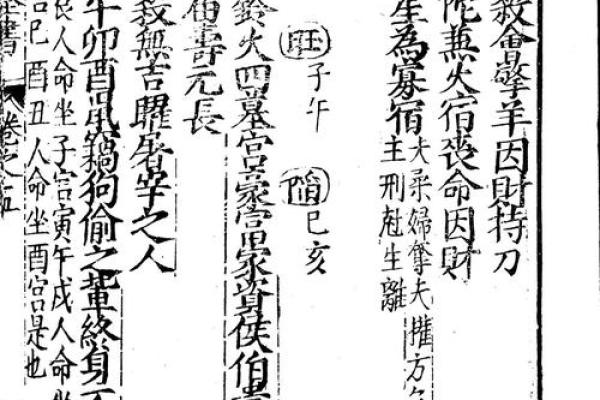 殺會擎羊因財持刀
陀兼火宿喪命因財
星為寡宿
夫柔婦奪夫權方
主刑尅生離
旺子午 陷巳亥
鈴火四墓宮豪富家資侯伯貴
伯壽元長
殺無吉曜屠宰之人
午卯酉鼠竊狗偷之輩終身不
人命坐子宮寅午戌人命坐
巳酉丑人命坐酉宮是也
書 卷之五